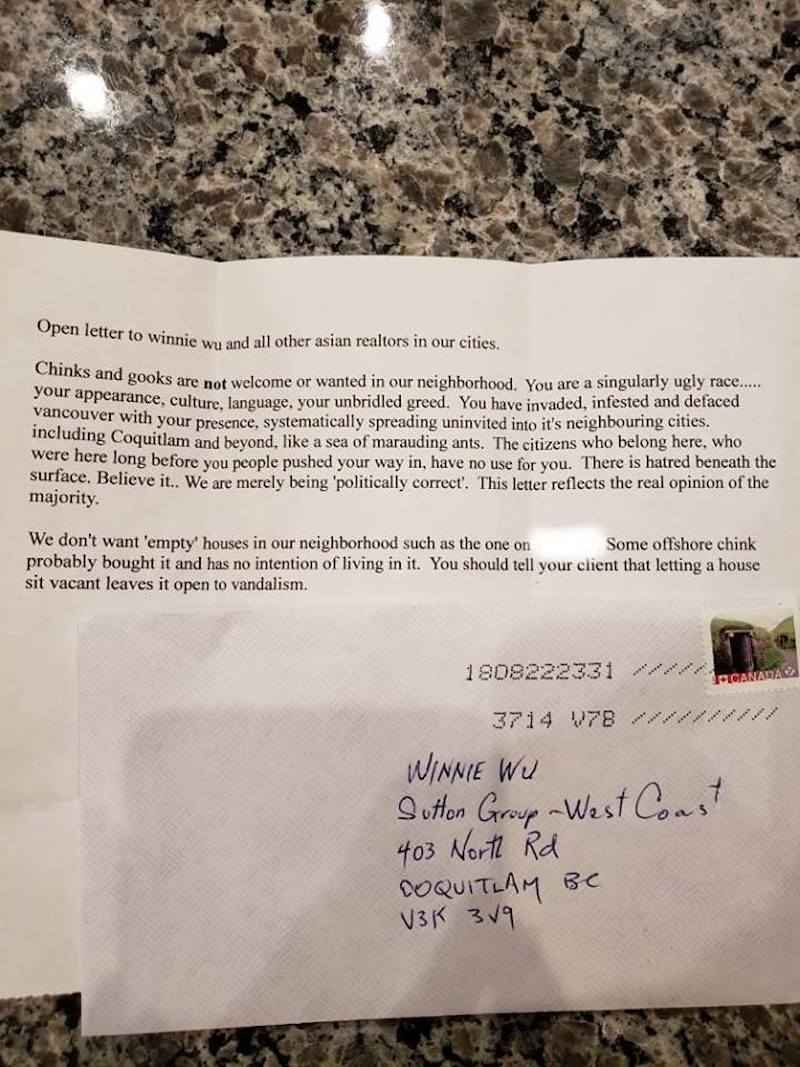 Open letter to winnie wu and all other asian realtors in our cities.
Chinks and gooks are not welcome or wanted in our neighborhood. You are a singularly ugly race.....
your appearance, culture, language, your unbridled greed. You have invaded, infested and defaced
vancouver with your presence, systematically spreading uninvited into it's neighbouring cities.
including Coquitlam and beyond, like a sea of marauding ants. The citizens who belong here, who
were here long before you people pushed your way in, have no use for you. There is hatred beneath the
surface. Believe it.. We are merely being 'politically correct'. This letter reflects the real opinion of the
majority.
We don't want 'empty' houses in our neighborhood such as the one on Some offshore chink
probably bought it and has no intention of living in it. You should tell your client that letting a house
sit vacant leaves it open to vandalism.
1808222331 //////
CANADA
3714 V7B //////////
WINNIE WU
Sutton Group ~ West Coast
403 North Rd
COQUITLAM BC
V3K 3V9